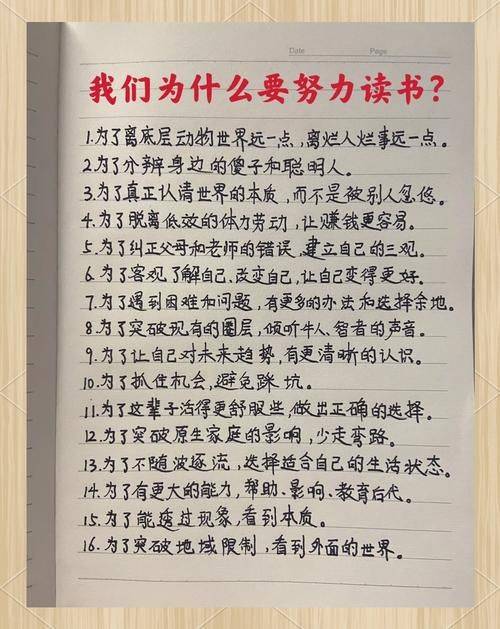 Date Page
我们为什么要努力读书?
1.为了离底层动物世界远一点,离烂人烂事远一点。
2.为了分辨身边的傻子和聪明人。
3.为了真正认清世界的本质,而不是被别人忽悠。
4.为了脱离低效的体力劳动,让赚钱更容易。
5.为了纠正父母和老师的错误,建立自己的三观。
6.为了客观了解自己、改变自己,让自己变得更好。
7.为了遇到困难和问题,有更多的办法和选择余地。
8.为了突破现有的圈层,倾听牛人、智者的声音。
9.为了让自己对未来趋势,有更清晰的认识。
10.为了抓住机会,避免踩坑。
11.为了这辈子活得更舒服些,做出正确的选择。
12.为了突破原生家庭的影响,少走弯路。
13.为了不随波逐流,选择适合自己的生活状态。
14.为了有更大的能力,帮助、影响、教育后代。
15.为了能透过现象,看到本质。
16.为了突破地域限制,看到外面的世界。